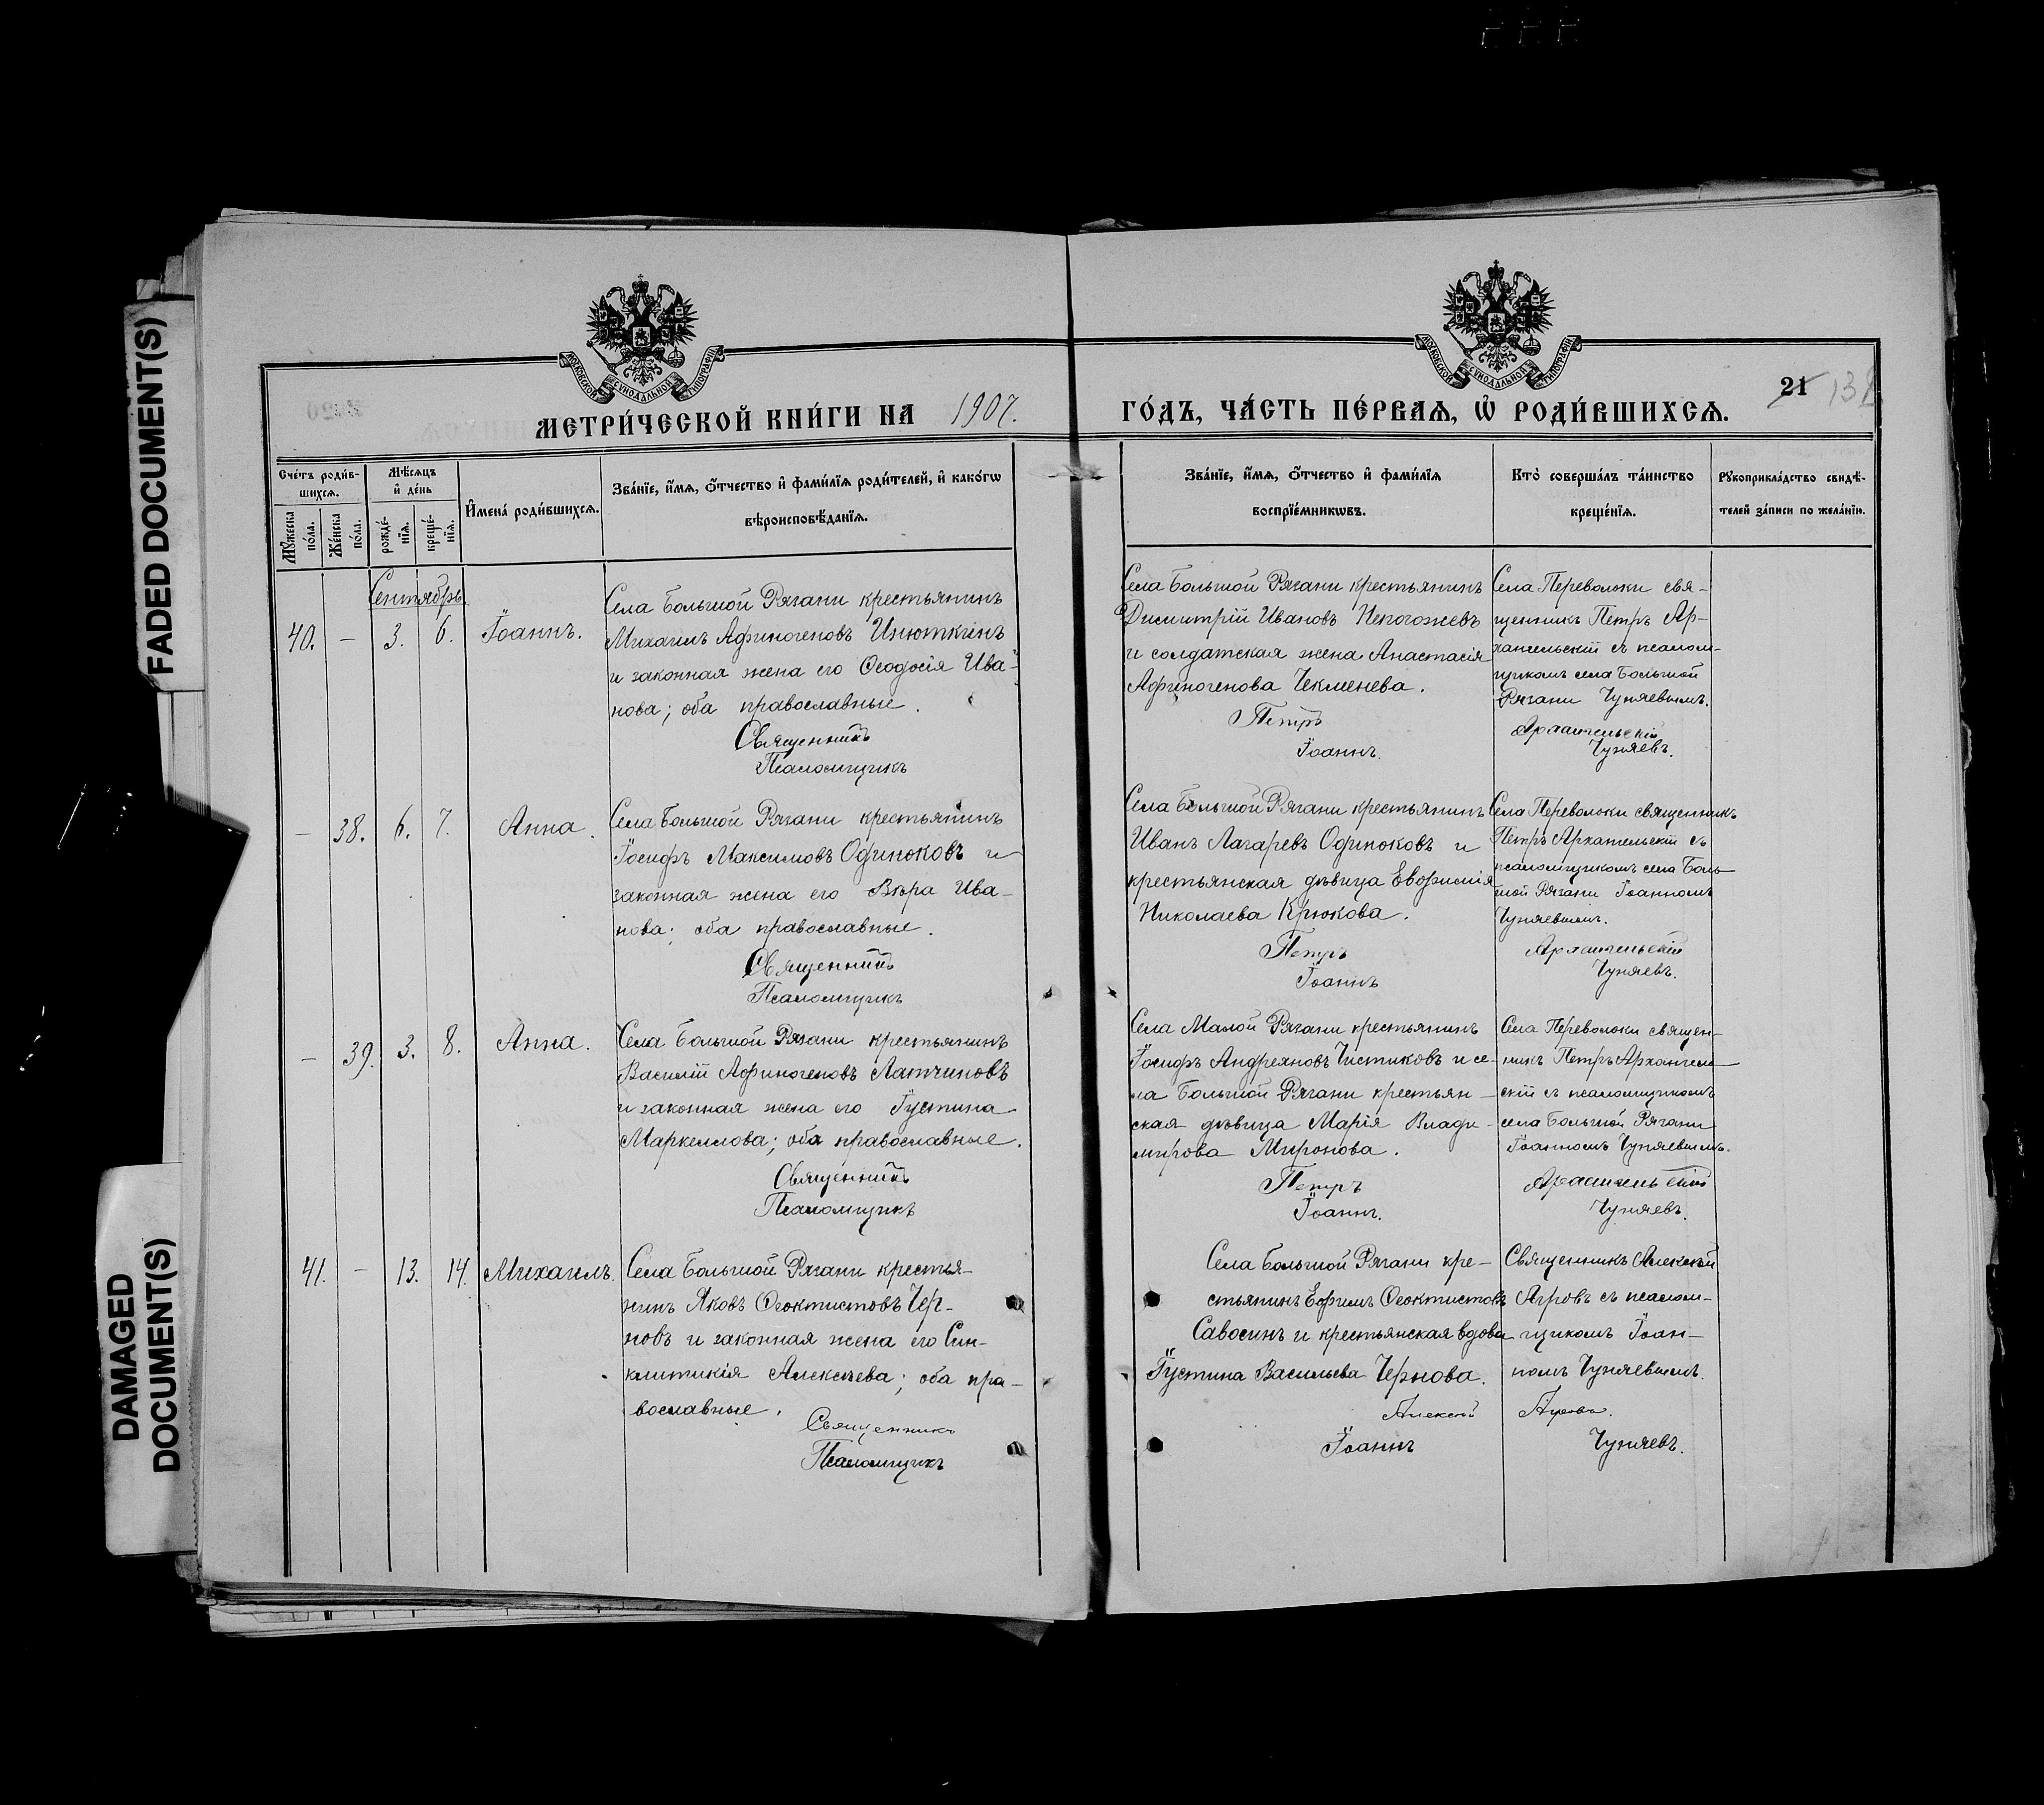 FADED DOCUMENT(S)
DAMAGED
DOCUMENT(S)
МОСКОВСКОЙ СѴНОДАЛЬНОЙ ТИПОГРАФІИ
МОСКОВСКОЙ СѴНОДАЛЬНОЙ ТИПОГРАФІИ
21
МЕТРИ́ЧЕСКОЙ КНИ́ГИ НА 1907. ГО́ДЪ, ЧА́СТЬ ПЕ́РВАѦ, Ѡ҆ РОДИ́ВШИХСѦ.
Сче́тъ роди́в-
шихсѧ.
Мꙋ́жеска
по́ла.
Же́нска
по́ла.
Мѣ́сѧцъ
и҆ де́нь
рожде́-
нїѧ.
креще́-
нїѧ.
И҆мена̀ роди́вшихсѧ.
Зва́нїе, и҆́мѧ, ѻ҆́тчество и҆ фами́лїѧ роди́телей, и҆ како́гѡ
вѣроисповѣ́данїѧ.
Зва́нїе, и҆́мѧ, ѻ҆́тчество и҆ фами́лїѧ
воспрїе́мникѡвъ.
Кто̀ соверша́лъ та́инство
креще́нїѧ.
Рꙋкоприкла́дство свидѣ́-
телей за́писи по жела́нїю.
Сентябрь
40. — 3. 6. Іоаннъ.
Села Большой Рязани крестьянинъ
Михаилъ Афиногеновъ Инюткинъ
и законная жена его Ѳеодосія Ива-
нова; оба православные.
Священникъ
Псаломщикъ
Села Большой Рязани крестьянинъ
Димитрій Ивановъ Непогожевъ
и солдатская жена Анастасія
Афиногенова Чекменева.
Петръ
Іоаннъ.
Села Переволоки свя-
щенникъ Петръ Ар-
хангельскій съ псалом-
щикомъ села Большой
Рязани Чуняевымъ.
Архангельскій
Чуняевъ.
— 38. 6. 7. Анна.
Села Большой Рязани крестьянинъ
Іосифъ Максимовъ Одиноковъ и
законная жена его Вѣра Ива-
нова; оба православные.
Священникъ
Псаломщикъ
Села Большой Рязани крестьянинъ
Иванъ Лазаревъ Одиноковъ и
крестьянская дѣвица Евфимія
Николаева Крюкова.
Петръ
Іоаннъ
Села Переволоки священникъ
Петръ Архангельскій съ
псаломщикомъ села Боль-
шой Рязани Іоанномъ
Чуняевымъ.
Архангельскій
Чуняевъ.
— 39. 3. 8. Анна.
Села Большой Рязани крестьянинъ
Василій Афиногеновъ Латчиновъ
и законная жена его Іустина
Маркеллова; оба православные.
Священникъ
Псаломщикъ
Села Малой Рязани крестьянинъ
Іосифъ Андреяновъ Чистиковъ и се-
ла Большой Рязани крестьян-
ская дѣвица Марія Влади-
мирова Миронова.
Петръ
Іоаннъ.
Села Переволоки священ-
никъ Петръ Архангель-
скій съ псаломщикомъ
села Большой Рязани
Іоанномъ Чуняевымъ.
Архангельскій
Чуняевъ.
41. — 13. 14. Михаилъ.
Села Большой Рязани крестья-
нинъ Яковъ Ѳеоктистовъ Чер-
новъ и законная жена его Син-
клитикія Алексѣева; оба пра-
вославные.
Священникъ
Псаломщикъ
Села Большой Рязани кре-
стьянинъ Ефимъ Ѳеоктистовъ
Савосинъ и крестьянская вдова
Іустина Васильева Чернова.
Алексій
Іоаннъ
Священникъ Алексѣй
съ псалом-
щикомъ Іоан-
номъ Чуняевымъ.
Чуняевъ.